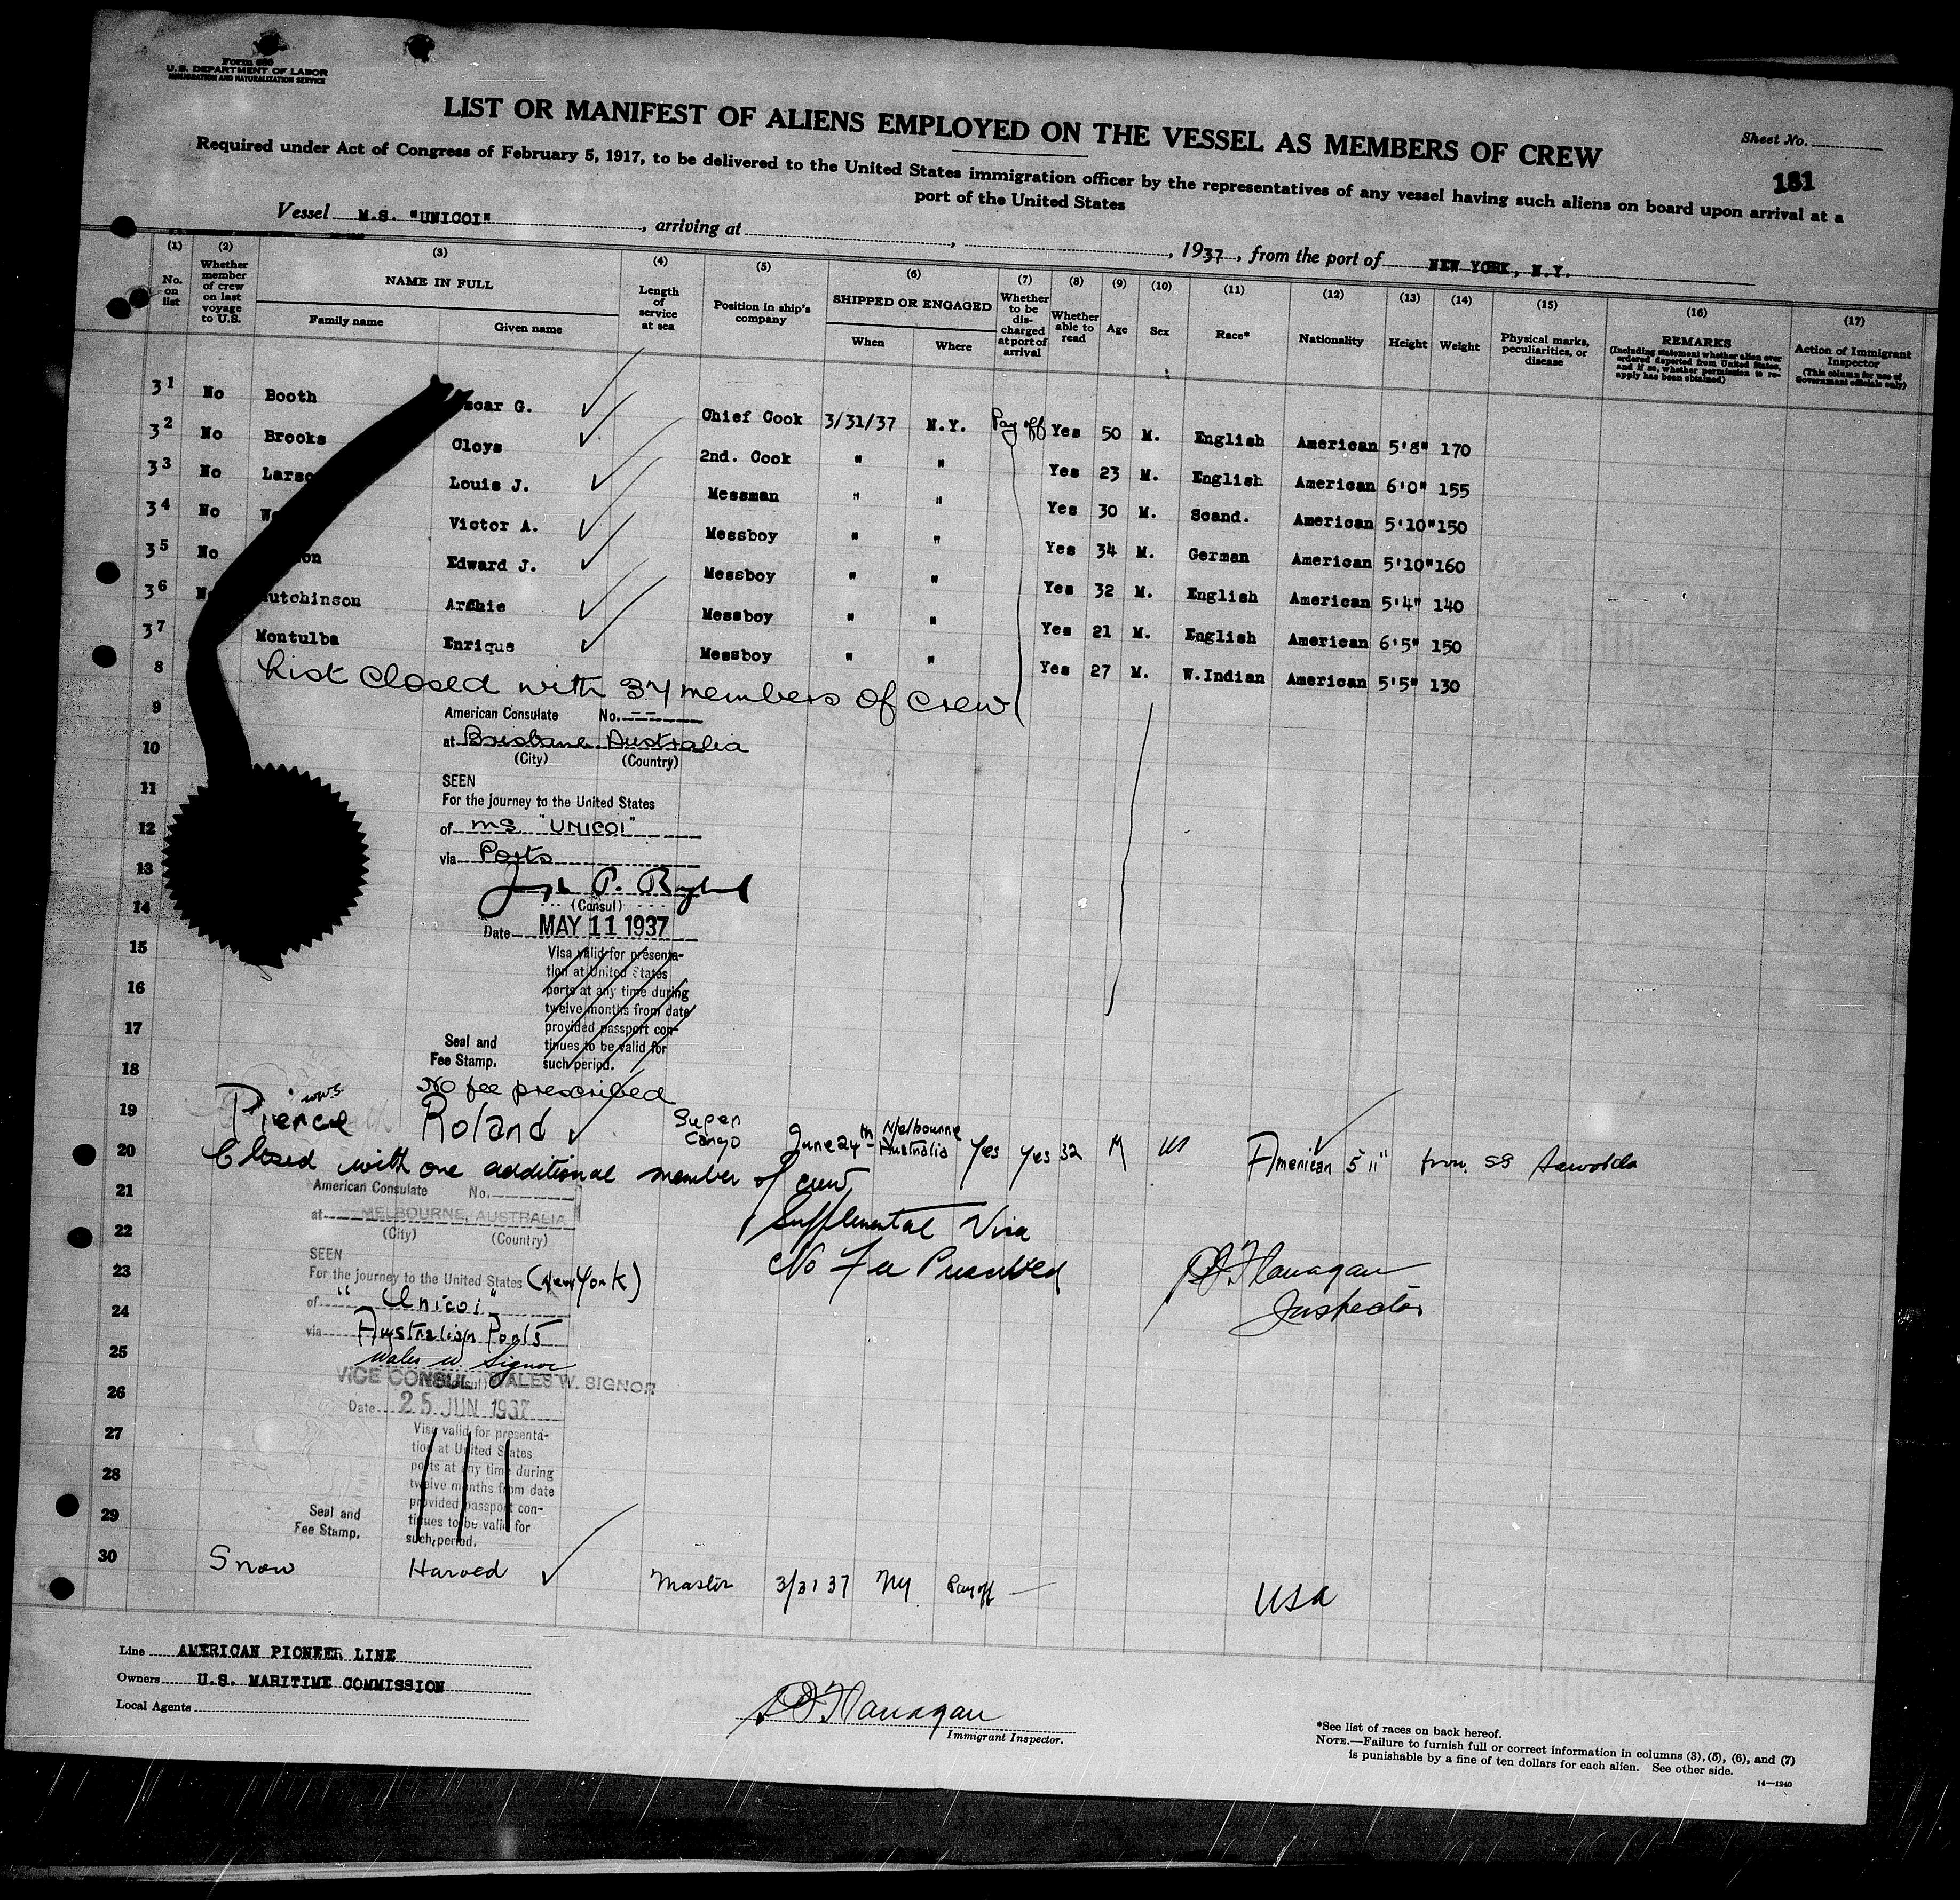 U.S. DEPARTMENT OF LABOR
IMMIGRATION AND NATURALIZATION SERVICE
LIST OR MANIFEST OF ALIENS EMPLOYED ON THE VESSEL AS MEMBERS OF CREW
Sheet No.
Required under Act of Congress of February 5, 1917, to be delivered to the United States immigration officer by the representatives of any vessel having such aliens on board upon arrival at a
port of the United States
181
Vessel M.S. "UNICOI", arriving at , , 1937, from the port of NEW YORK, N.Y.
(1) (2) (3) (4) (5) (6) (7) (8) (9) (10) (11) (12) (13) (14) (15) (16) (17)
No. on list Whether member of crew on last voyage to U.S. NAME IN FULL Family name Given name Length of service at sea Position in ship's company SHIPPED OR ENGAGED When Where Whether to be discharged at port of arrival Whether able to read Age Sex Race* Nationality Height Weight Physical marks, peculiarities, or disease REMARKS (Including statement whether alien ever ordered deported from United States, and if so, whether permission to re-apply has been obtained) Action of Immigrant Inspector (This column for use of Government officials only)
31 No Booth scar G. Chief Cook 3/31/37 N.Y. Pay off Yes 50 M. English American 5'8" 170
32 No Brooks Cloys 2nd. Cook " " Yes 23 M. English American 6'0" 155
33 No Larso Louis J. Messman " " Yes 30 M. Scand. American 5'10" 150
34 No Victor A. Messboy " " Yes 34 M. German American 5'10" 160
35 No on Edward J. Messboy " " Yes 32 M. English American 5'4" 140
36 utchinson Archie Messboy " " Yes 21 M. English American 6'5" 150
37 Montulba Enrique Messboy " " Yes 27 M. W.Indian American 5'5" 130
8 List closed with 37 members of crew
9 American Consulate No.
10 at Brisbane Australia
(City) (Country)
11 SEEN
For the journey to the United States
12 of MS "UNICOI"
13 via Ports
14 (Consul)
Date MAY 11 1937
15 Visa valid for presenta-
tion at United States
16 ports at any time during
twelve months from date
17 provided passport con-
Seal and tinues to be valid for
Fee Stamp. such period.
18 No fee prescribed
19 Pierce Roland Super Cargo June 24th Melbourne Australia Yes Yes 32 M US American 5'11" from SS
20 Closed with one additional member of crew
21 American Consulate No.
at MELBOURNE, AUSTRALIA
22 (City) (Country)
Supplemental Visa
SEEN
No Fee Prescribed
23 For the journey to the United States (New York)
Flanagan
Inspector
24 of "Unicoi"
via Australian Ports
25 Wales W. Signor
VICE CONSUL WALES W. SIGNOR
(Consul)
26 Date 25 JUN 1937
27 Visa valid for presenta-
tion at United States
28 ports at any time during
twelve months from date
29 provided passport con-
Seal and tinues to be valid for
Fee Stamp. such period.
30 Snow Harold Master 3/31 37 NY Pay off USA
Line AMERICAN PIONEER LINE
Owners U.S. MARITIME COMMISSION
Local Agents
Flanagan
Immigrant Inspector.
*See list of races on back hereof.
NOTE.—Failure to furnish full or correct information in columns (3), (5), (6), and (7)
is punishable by a fine of ten dollars for each alien. See other side.
14—1240